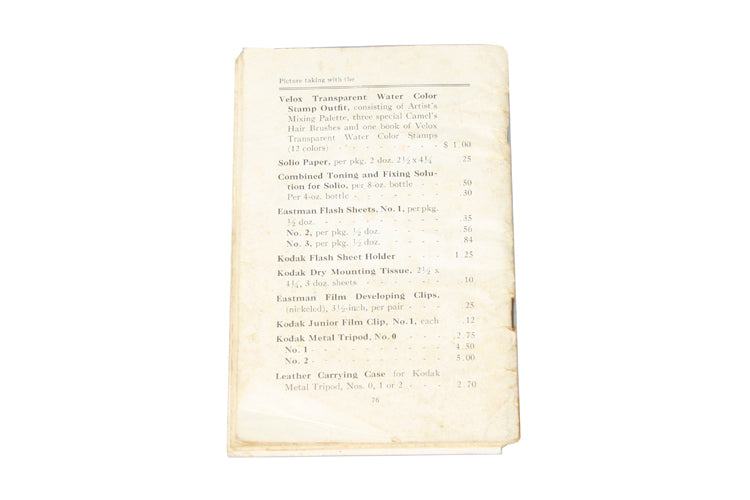 Picture taking with the
Velox Transparent Water Color
Stamp Outfit, consisting of Artist's
Mixing Palette, three special Camel's
Hair Brushes and one book of Velox
Transparent Water Color Stamps
(12 colors) - - - - - - - $ 1.00
Solio Paper, per pkg. 2 doz. 2½ x 4¼ 25
Combined Toning and Fixing Solu-
tion for Solio, per 8-oz. bottle - - 50
Per 4-oz. bottle - - - - - - .30
Eastman Flash Sheets, No. 1, per pkg.
½ doz. - - - - - - - - .35
No. 2, per pkg. ½ doz. - - - - 56
No. 3, per pkg. ½ doz. - - - - 84
Kodak Flash Sheet Holder - - - 1 25
Kodak Dry Mounting Tissue, 2½ x
4¼, 3 doz. sheets - - - - - .10
Eastman Film Developing Clips,
(nickeled), 3½-inch, per pair - - - .25
Kodak Junior Film Clip, No. 1, each .12
Kodak Metal Tripod, No. 0 - - - 2.75
No. 1 - - - - - - - - - 4.50
No. 2 - - - - - - - - - 5.00
Leather Carrying Case for Kodak
Metal Tripod, Nos. 0, 1 or 2 - - - 2.70
76